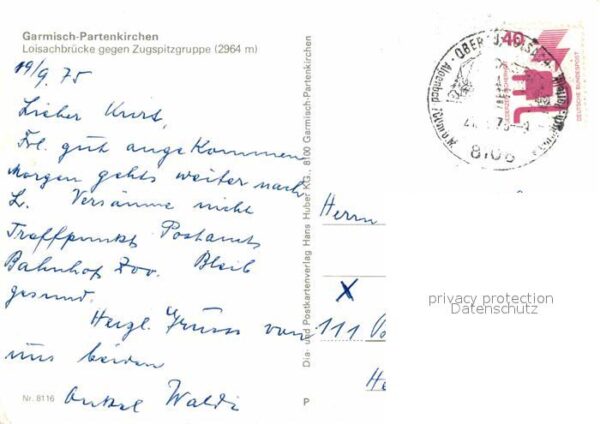 Garmisch-Partenkirchen
Loisachbrücke gegen Zugspitzgruppe (2964 m)
19/9. 75
Lieber Kurt,
Frl. gut angekommen
Morgen gehts weiter nach
L. Versäume nicht
Treffpunkt Postamt
Bahnhof Zoo. Bleib
gesund.
Herzl. Gruss von
uns beiden
Onkel Waldi
Nr. 8116
P
Dia- und Postkartenverlag Hans Huber KG., 8100 Garmisch-Partenkirchen
40
DEUTSCHE BUNDESPOST
8106
Herrn
X
111
He
privacy protection
Datenschutz